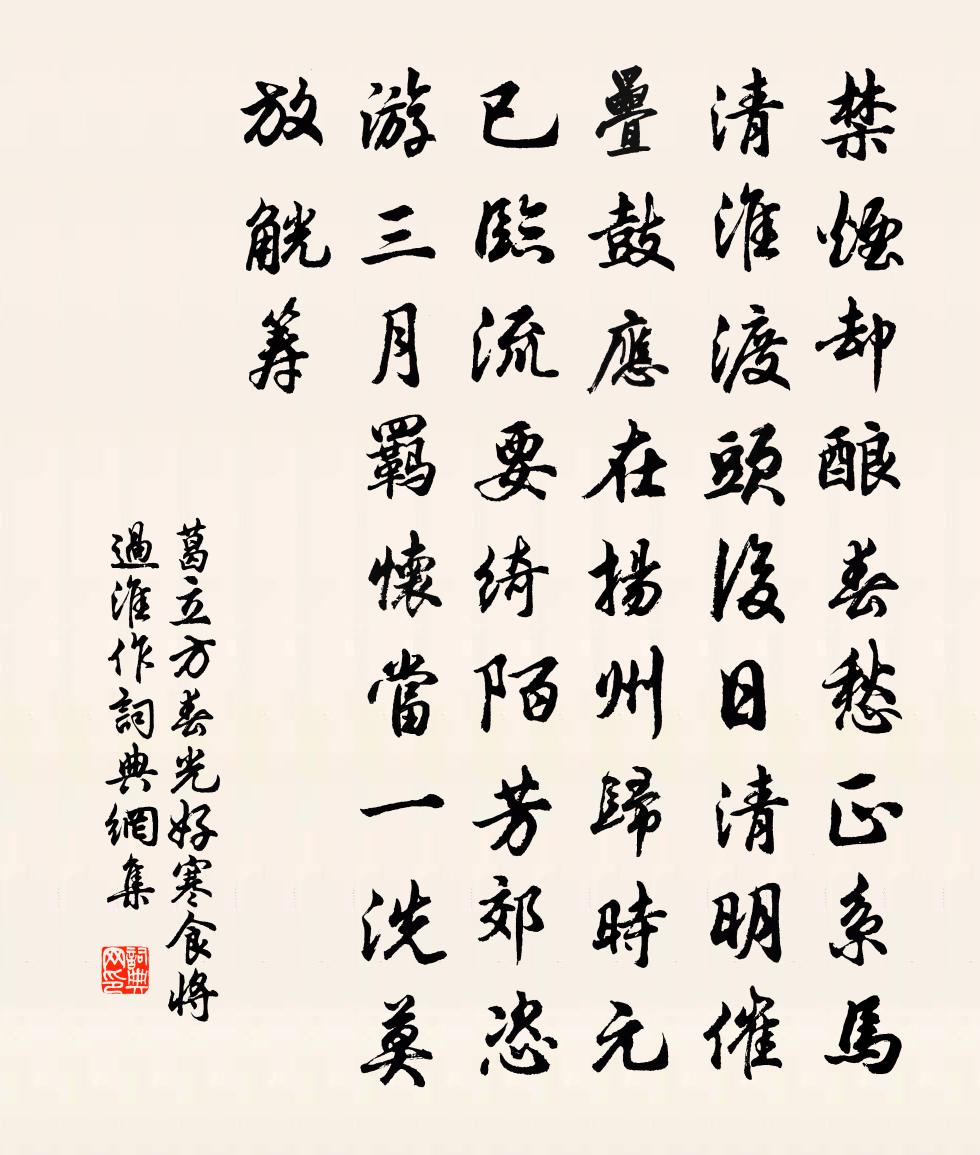 禁煙却酿春愁正系馬
清淮渡頭後日清明催
疊鼓應在揚州歸時元
已臨流要綺陌芳郊恣
游三月羈懷當一洗莫
放觥筹
葛立方春光好寒食將
過淮作詞典網集
詞典网印